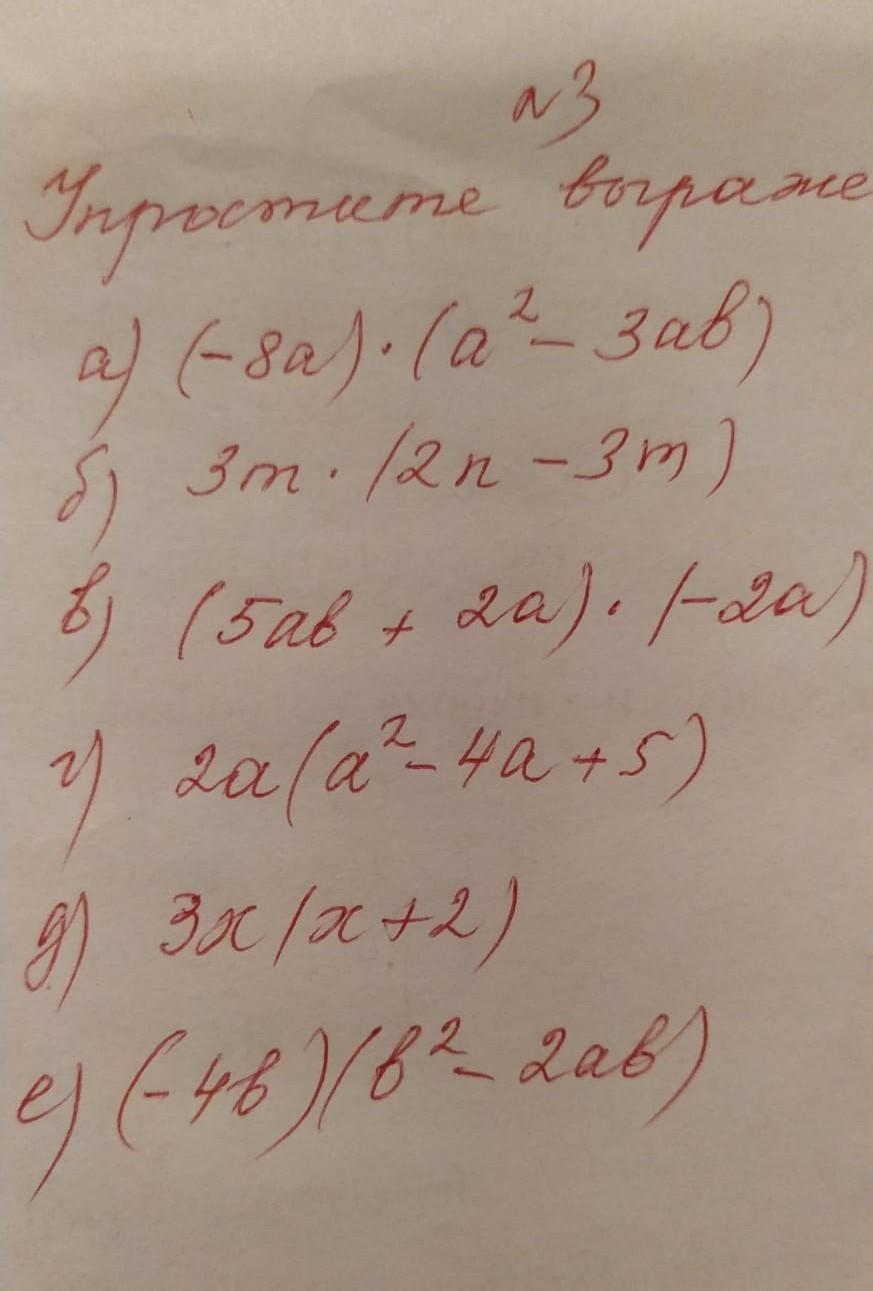 №3
Упростите выраже
а) (-8a)·(a²- 3ab)
б) 3m·(2n - 3m)
в) (5ab + 2a)·(-2a)
г) 2a(a²- 4a + 5)
д) 3x(x+2)
е) (-4b)(b²- 2ab)